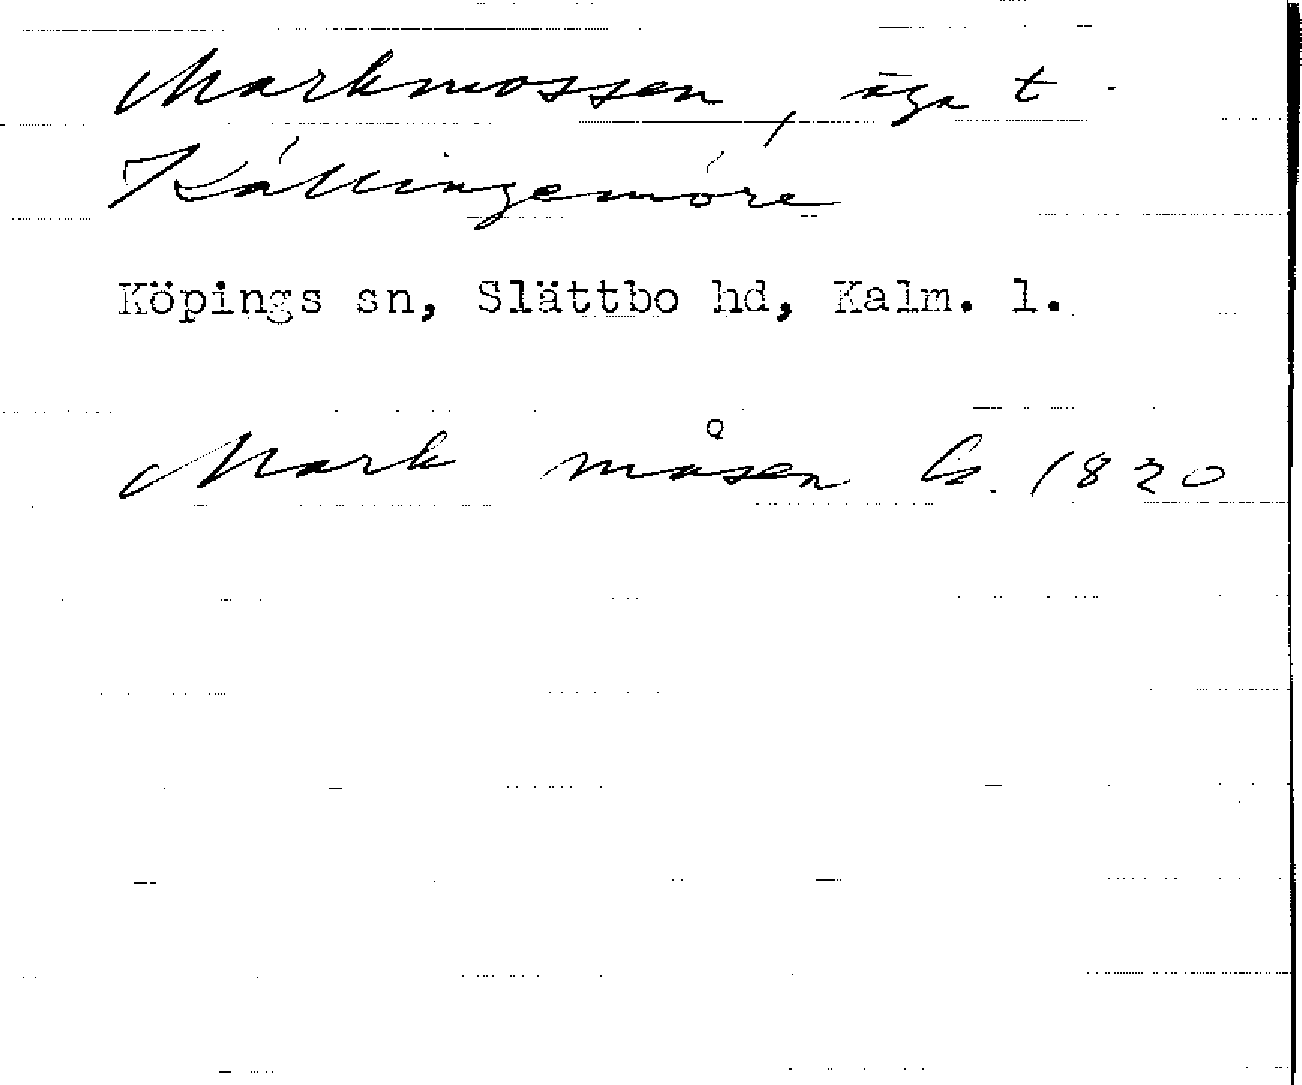 Markmossen, äga t
Källingemöre
Köpings sn, Slättbo hd, Kalm. l.
Mark måsen Gs. 1820